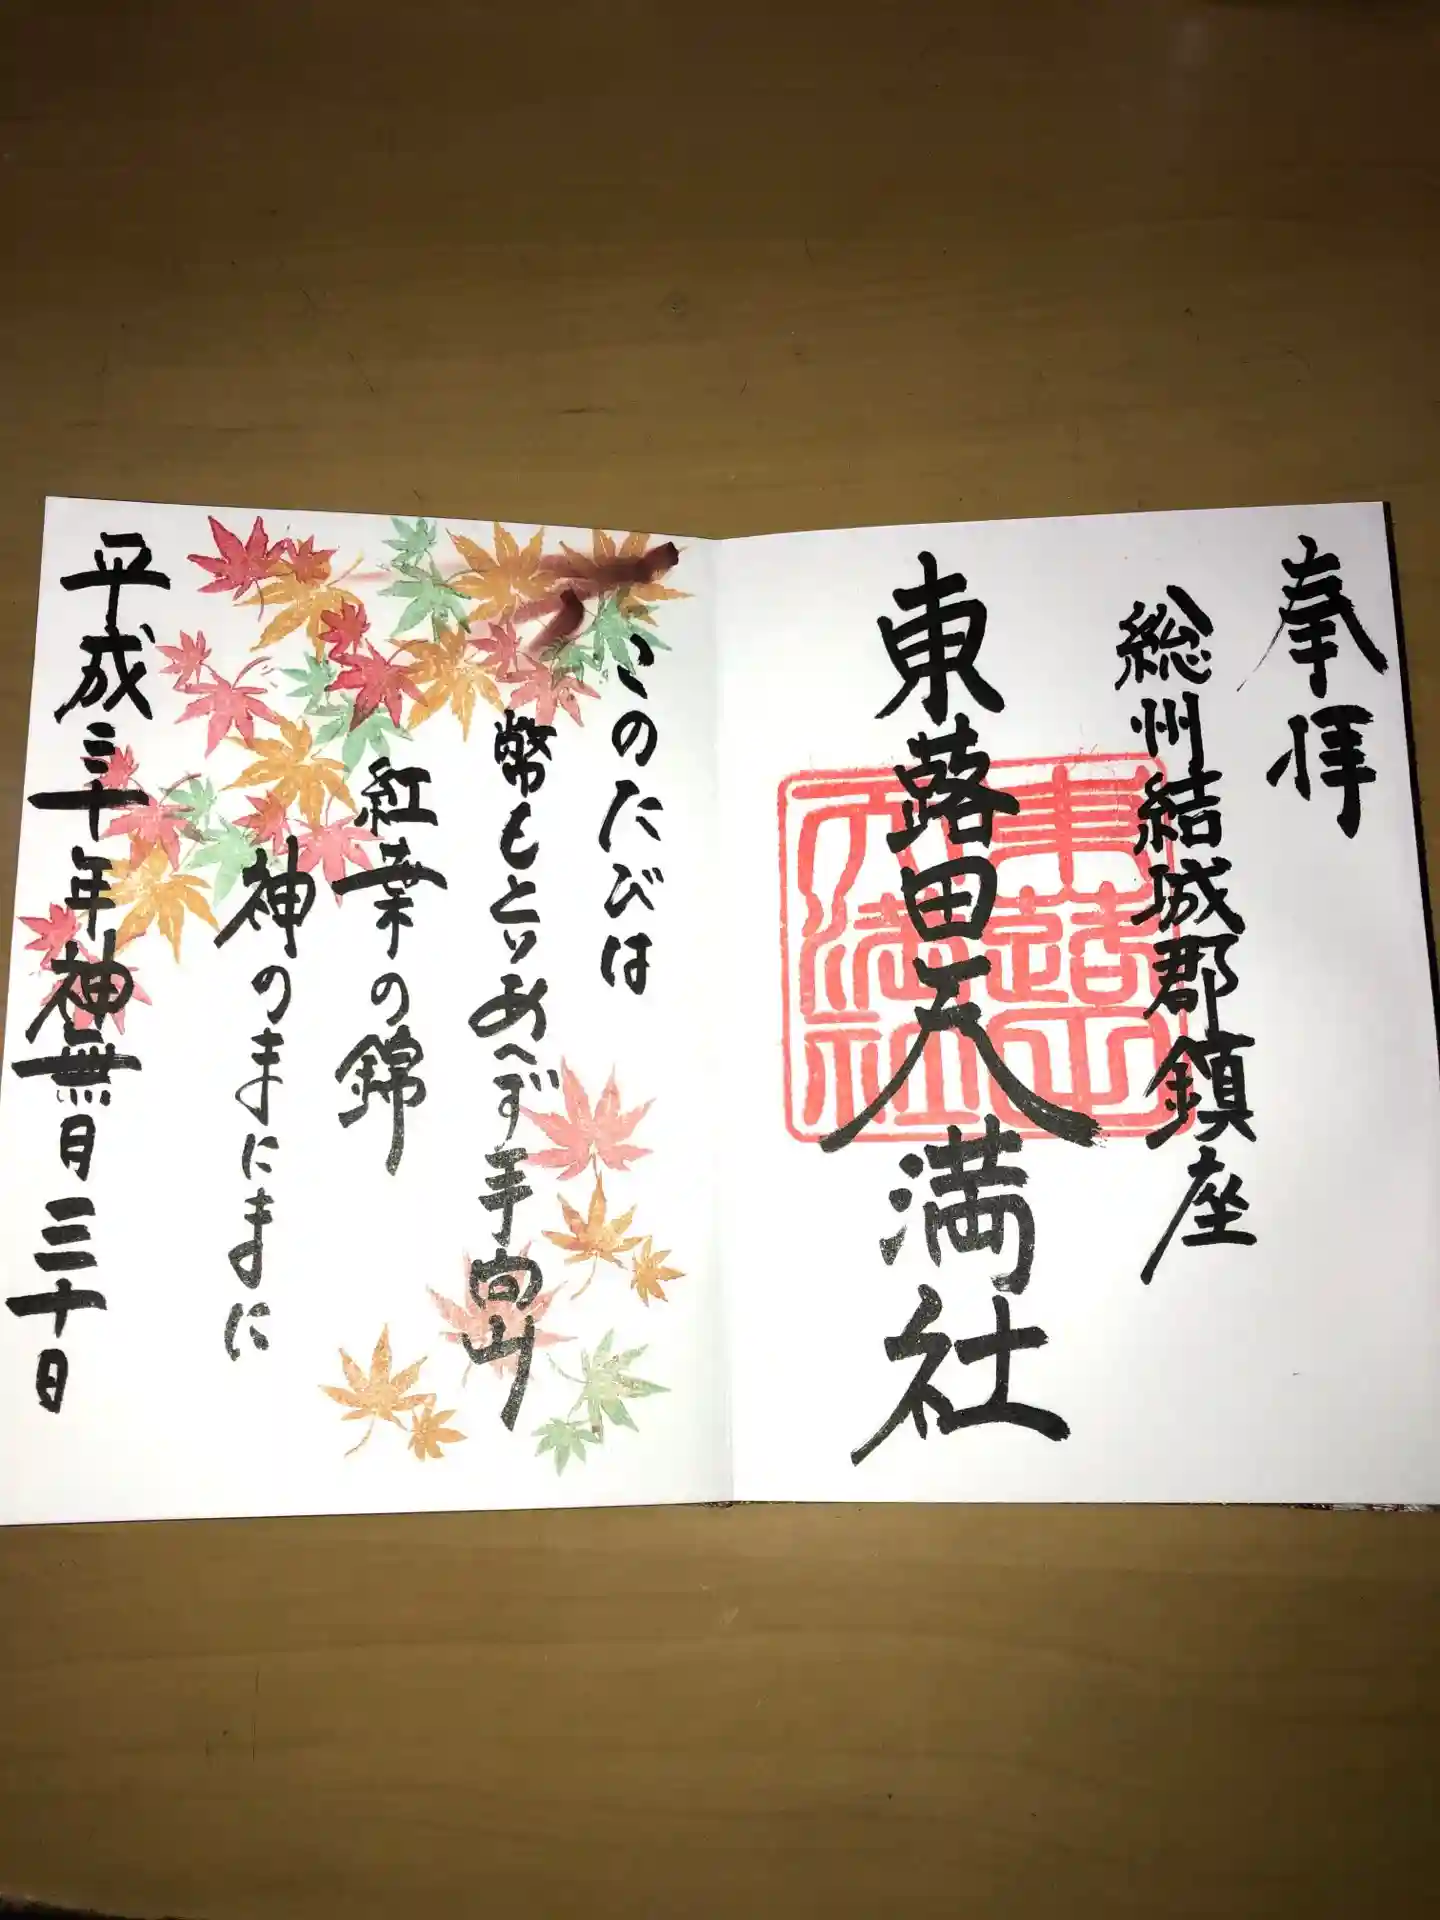 奉拝
総州結城郡鎮座
東蕗田天満社
東蕗田
天満社
このたびは
幣もとりあへず手向山
紅葉の錦
神のまにまに
平成三十年神無月三十日